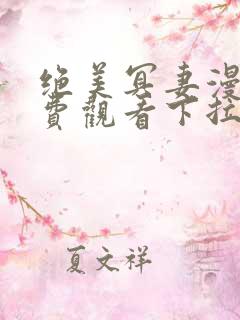 绝美冥妻漫
費觀看下拉
夏文祥